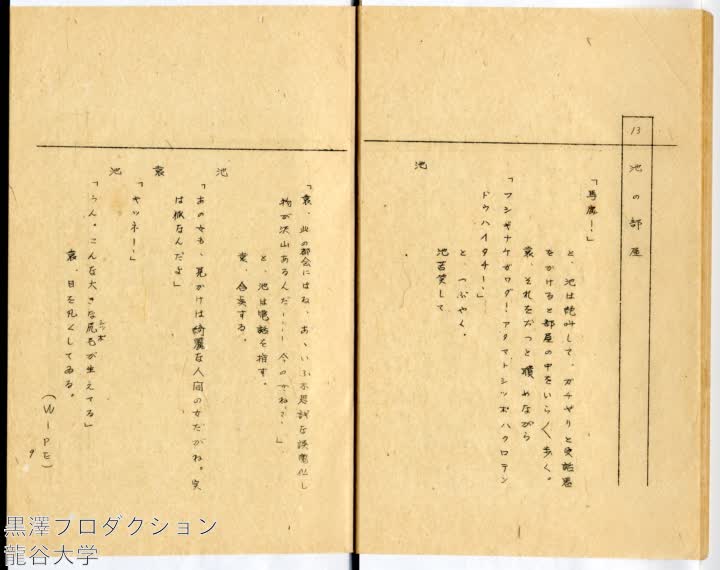 13 池の部屋
「馬鹿!」
と、池は絶叫して、ガチヤリと受話器
をかけると部屋の中をいら〱歩く。
袁、それをぢつと横めながら
「フシギナケダワダ!アタマトシツポハクロテン
ドウハイタチー!」
と、つぶやく。
池
池苦笑して
「袁、此の都会にはね、あゝいふ不思議な
物が沢山あるんだ……今のがね?」
と、池は電話を指す。
袁、合点する。
池
「あの女も、見かけは綺麗な人間の女だがね。実
は狐なんだよ」
袁
「キツネー!」
池
「うん。こんな大きな尻尾が生えてる」
シッポ
袁、目を丸くしてゐる。
(WIPE)
9
黒澤プロダクション
龍谷大学